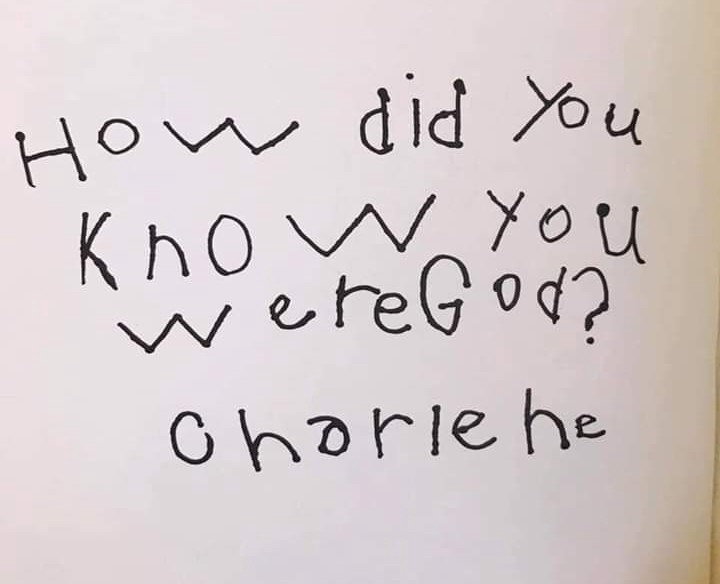 How did You
Know You
were God?
Charlene